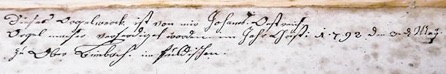 Dieses Orgelwerk ist von mir Johann Oestreich
Orgel macher verfertiget worden im Jahr Christi 1792 den 3. May
zu Ober Bimbach im Fuldischen.